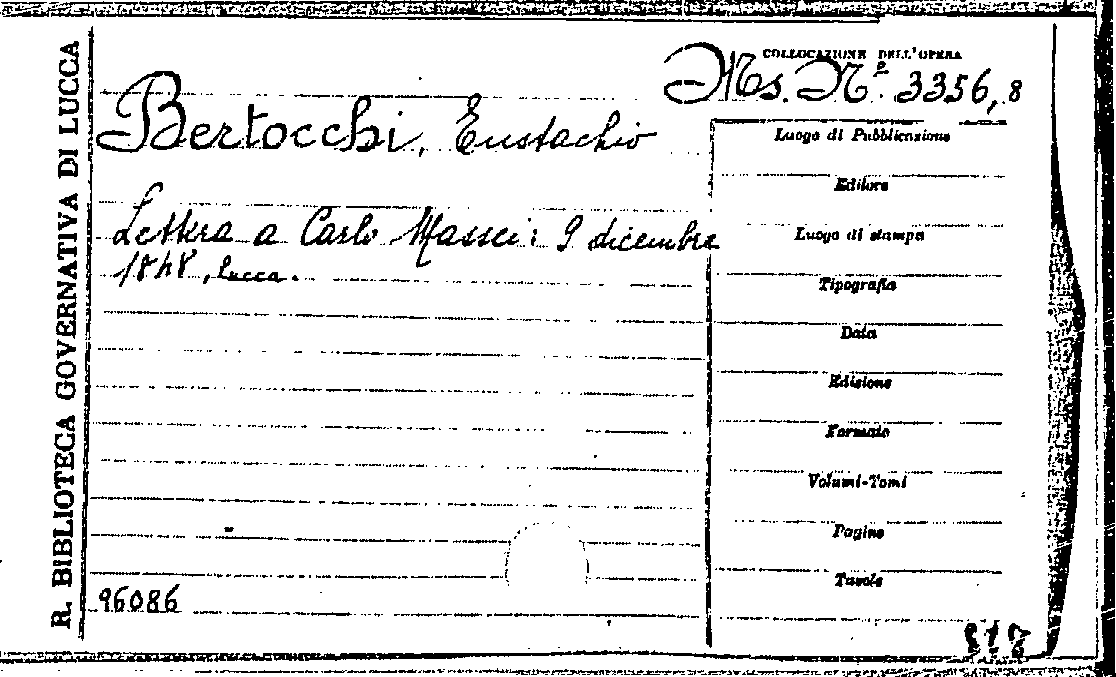 R. BIBLIOTECA GOVERNATIVA DI LUCCA
COLLOCAZIONE DELL'OPERA
Ms. Nº. 3356, 8
Bertocchi, Eustachio
Lettera a Carlo Massei: 9 dicembre
1848, Lucca.
Luogo di Pubblicazione
Editore
Luogo di stampa
Tipografia
Data
Edizione
Formato
Volumi-Tomi
Pagine
Tavole
96086